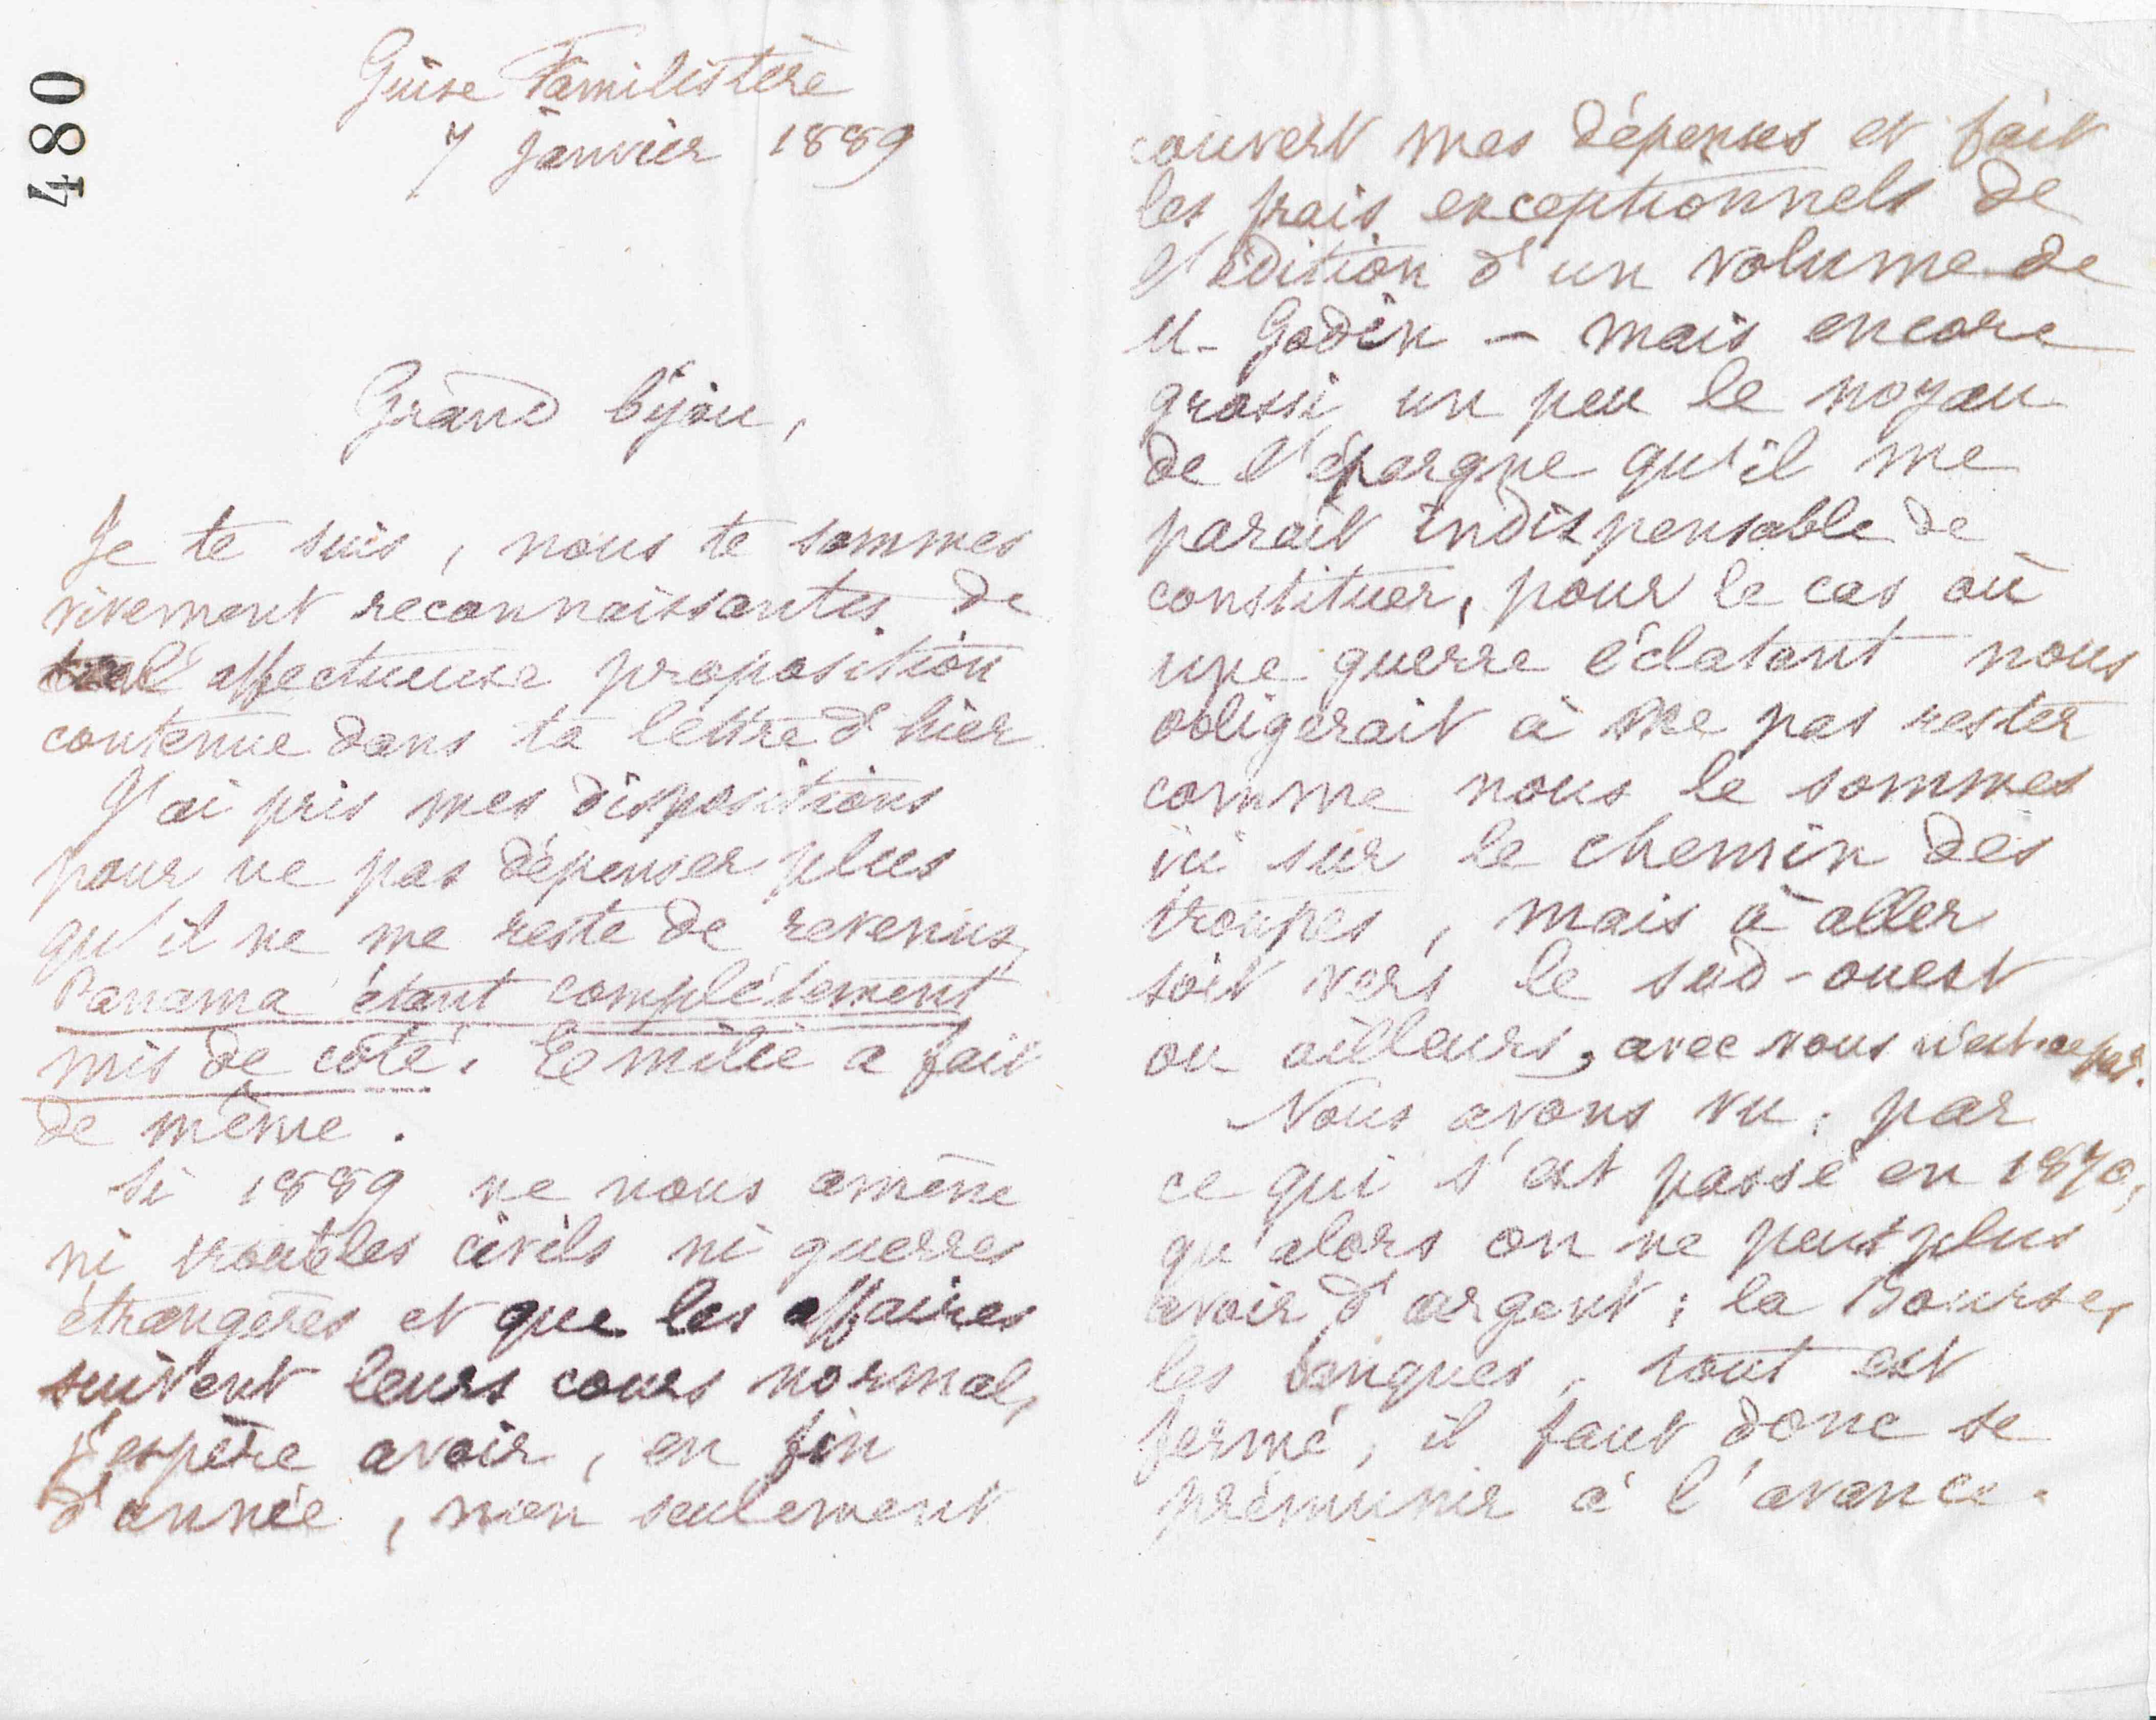 480
Guise Familistère
7 janvier 1889
Grand bijou,
Je te suis, nous te sommes
vivement reconnaissantes de
l'affectueuse proposition
contenue dans ta lettre d'hier
J'ai pris mes dispositions
pour ne pas dépenser plus
qu'il ne me reste de revenus,
Panama étant complètement
mis de côté. Emilie a fait
de même.
Si 1889 ne nous amène
ni troubles civils ni guerres
étrangères et que les affaires
suivent leurs cours normal,
j'espère avoir, en fin
d'année, non seulement
couvert mes dépenses et fait
les frais exceptionnels de
l'édition d'un volume de
M. Godin - mais encore
grossi un peu le noyau
de l'épargne qu'il me
parait indispensable de
constituer, pour le cas où
une guerre éclatant nous
obligerait à ne pas rester
comme nous le sommes
ici sur le chemin des
troupes, mais à aller
soit vers le sud-ouest
ou ailleurs, avec vous n'est-ce pas.
Nous avons vu, par
ce qui s'est passé en 1870,
qu'alors on ne peut plus
avoir d'argent; la Bourse,
les banques, tout est
fermé, il faut donc se
prémunir à l'avance.